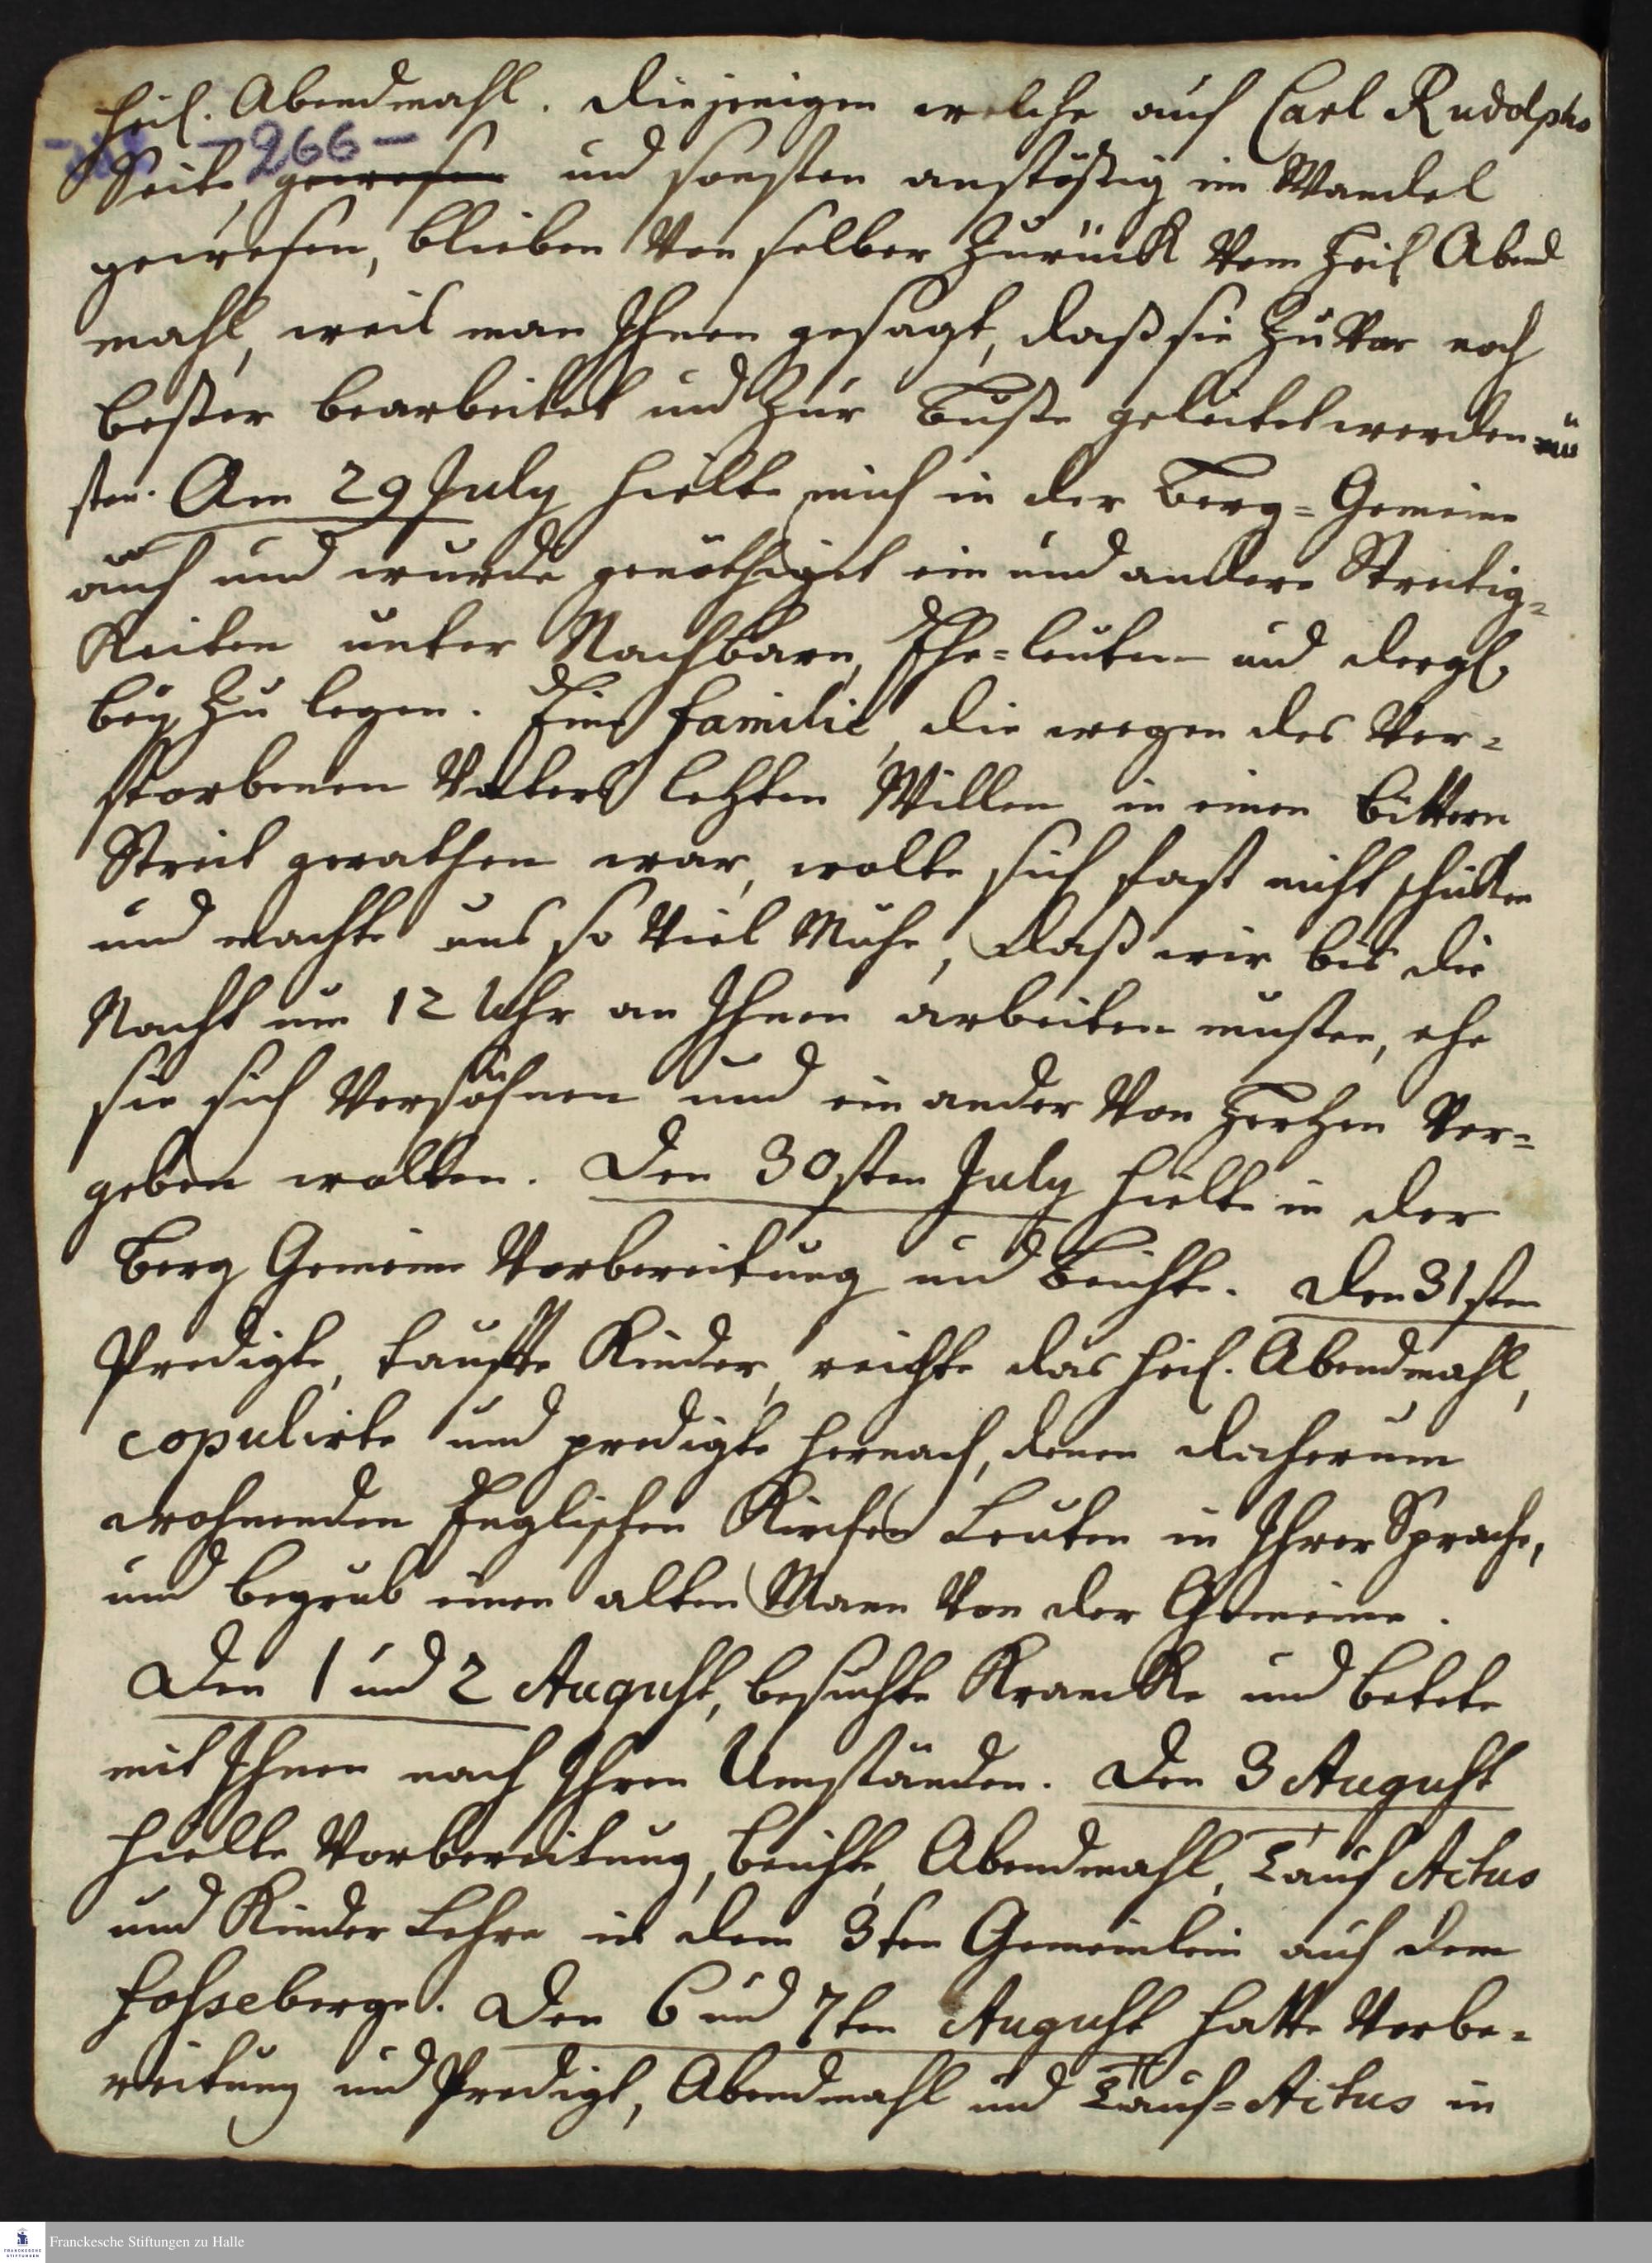 heil. Abendmahl. Diejenigen welche auf Carl Rudolphs
- 266 -
Seite, gewesen und sonsten anstößig im Wandel
gewesen, blieben von selber zurück vom heil Abend
mahl, weil man Ihnen gesagt, daß sie zuvor noch
beßer bearbeitet und zur Buße geleitet werden mü
sten. Am 29 July hielte mich in der Berg-Gemeine
auf und wurde genöthiget ein und andere Streitig-
keiten unter Nachbarn, Ehe-leuten und dergl.
bey zu legen. Eine familie, die wegen des Ver-
storbenen Vaters letzten Willen in einen bittern
Streit gerathen war, wolte sich fast nicht schicken
und machte uns so viel Mühe, daß wir bis die
Nacht um 12 Uhr an Ihnen arbeiten musten, ehe
sie sich versöhnen und ein ander von Hertzen ver-
geben wolten. Den 30sten July hielte in der
Berg Gemeine Vorbereitung und Beichte. Den 31sten
Predigte, taufte Kinder, reichte das heil. Abendmahl,
copulirte und predigte hernach, denen daherum
wohnenden Englischen Kirchen Leuten in Ihrer Sprache,
und begrub einen alten Mann von der Gemeine.
Den 1 und 2 August, besuchte Krancke und betete
mit Ihnen nach Ihren Umständen. Den 3 August
hielte Vorbereitung, beichte, Abendmahl, Tauf Actus
und Kinder Lehre in dem 3ten Gemeinlein auf dem
fosseberge. Den 6 und 7ten August hatte Vorbe-
reitung und Predigt, Abendmahl und Tauf-Actus in
FRANCKESCHE STIFTUNGEN
Franckesche Stiftungen zu Halle